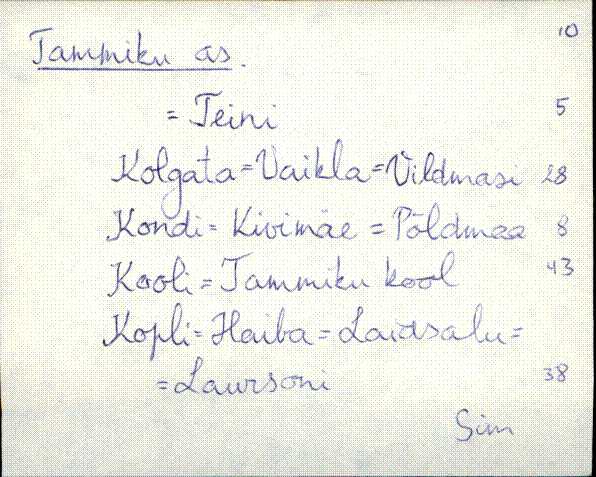 10
Tammiku as.
= Teini 5
Kolgata = Vaikla = Vildmasi 28
Kondi = Kivimäe = Põldmaa 8
Kooli = Tammiku kool 43
Kopli = Haiba = Laidsalu =
= Laursoni 38
Sim